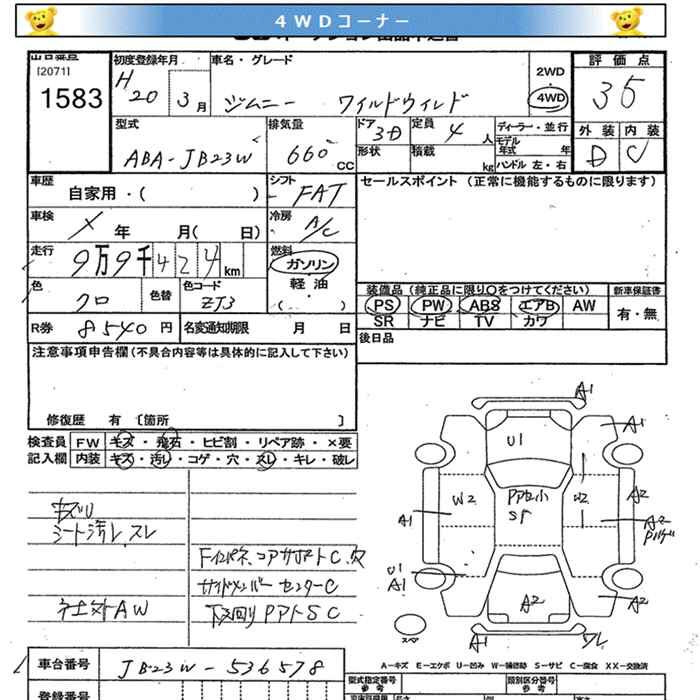 4WDコーナー
出品番号
[2071]
1583
初度登録年月
H20 3月
車名・グレード
ジムニー ワイルドウィンド
2WD
4WD
評価点
35
外装 内装
D C
型式
ABA-JB23W
排気量
660 CC
ドア 3D
定員 4 人
形状
積載 kg
ディーラー・並行
モデル年式 年
ハンドル 左・右
車歴
自家用・( )
シフト
FAT
セールスポイント (正常に機能するものに限ります)
車検
× 年 月( 日)
冷房
A/C
走行
9万9千424km
燃料
ガソリン
軽油
・( )
色
クロ
色替
色コード
ZJ3
装備品 (純正品に限り○をつけてください)
PS PW ABS エアB AW
SR ナビ TV カワ
新車保証書
有・無
R券 8540円
名変通知期限 月 日
後日品
注意事項申告欄(不具合内容等は具体的に記入して下さい)
修復歴 有 〔箇所 〕
検査員記入欄
FW キズ・飛石・ヒビ割・リペア跡・×要
内装 キズ・汚レ・コゲ・穴・スレ・キレ・破レ
キズU
シート汚レ、スレ
Fインパネ、コアサポートC、穴
サイドメンバー センターC
ネ土外AW
下廻リ PアトSC
A1
A1
U1
W2
Pアセ小
SF
U2
A2
A1
A2
Pハゲ
U1
A1
A2
スペア
A1
ワレ
車台番号 JB23W-536578
A-キズ E-エクボ U-凹み W-補修跡 S-サビ C-腐食 XX-交換済
登録番号
型式指定番号
参考
類別区分番号
参考